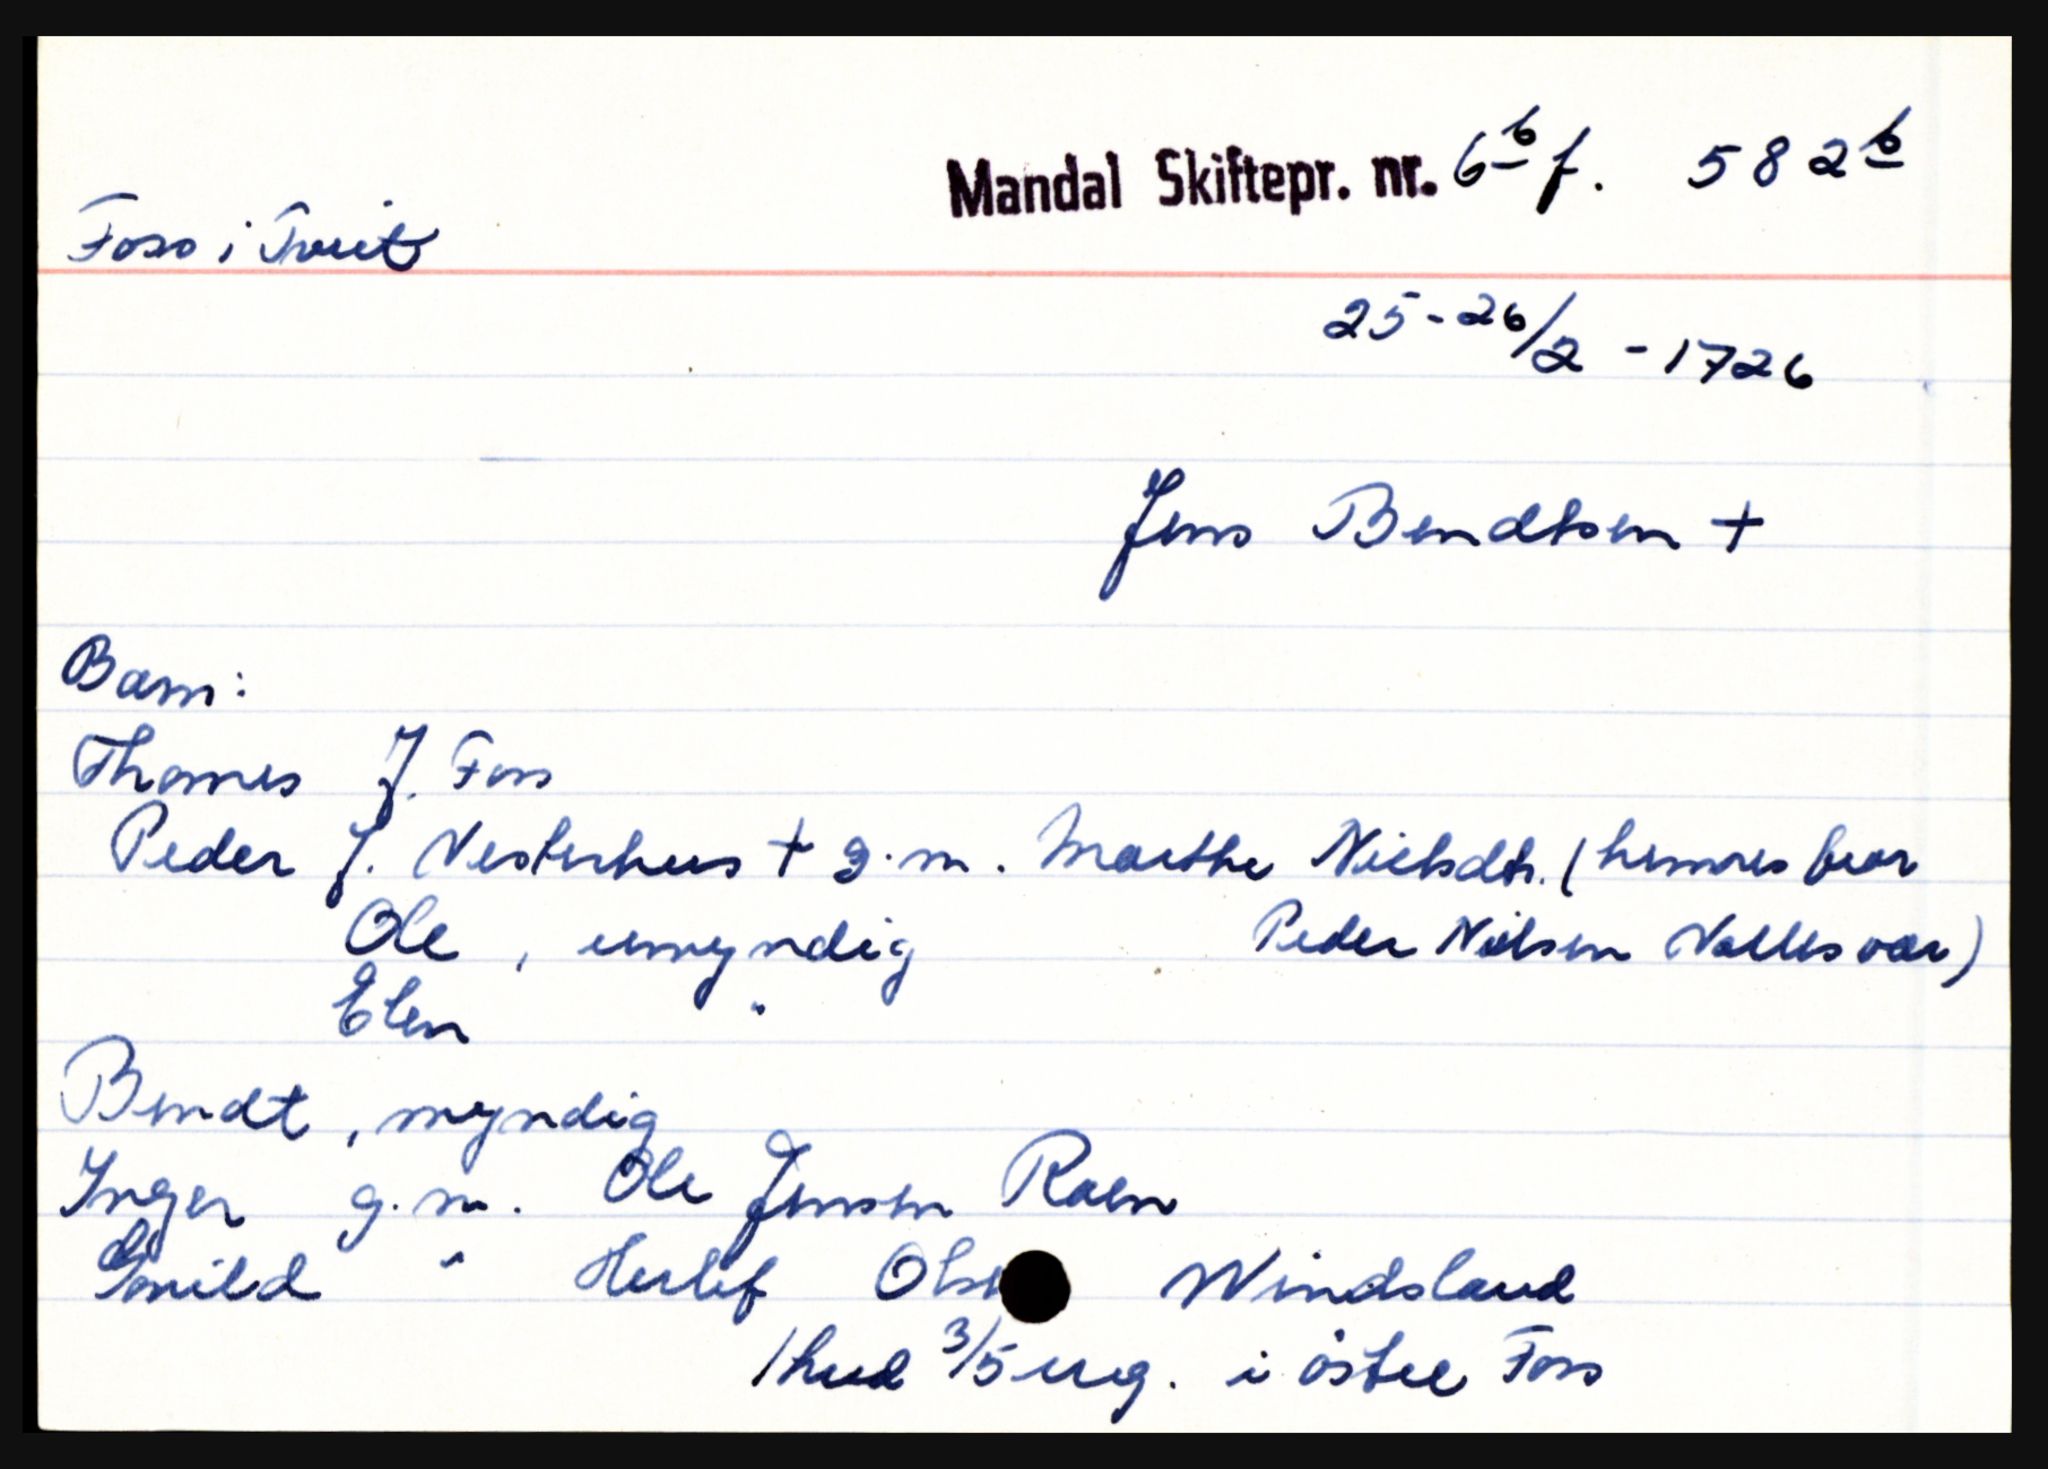 Mandal Skiftepr. nr. 6b f. 582b
Foss i Tveit
25-26/2 - 1726
Jens Bendtsen +
Barn:
Thomes J. Foss
Peder J. Vesterhus + g.m. Marthe Nielsdtr. (hennes bror
Ole , umyndig Peder Nielsen Valles var)
Elen "
Bendt , myndig
Inger g.m. Ole Jensen Roen
Gunild " Herlef Olsen Windsland
1 hud 3/5 eng. i östre Foss